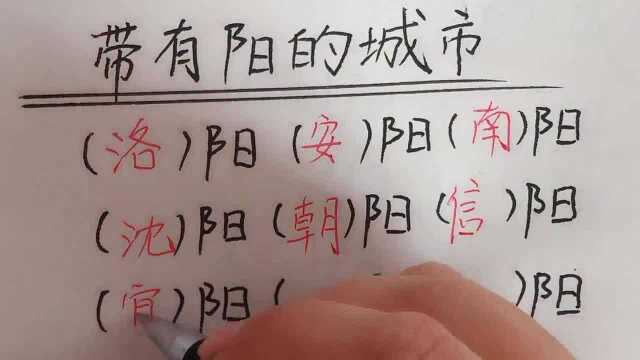 带有阳的城市
(洛)阳 (安)阳 (南)阳
(沈)阳 (朝)阳 (信)阳
(宜)阳 ( )阳